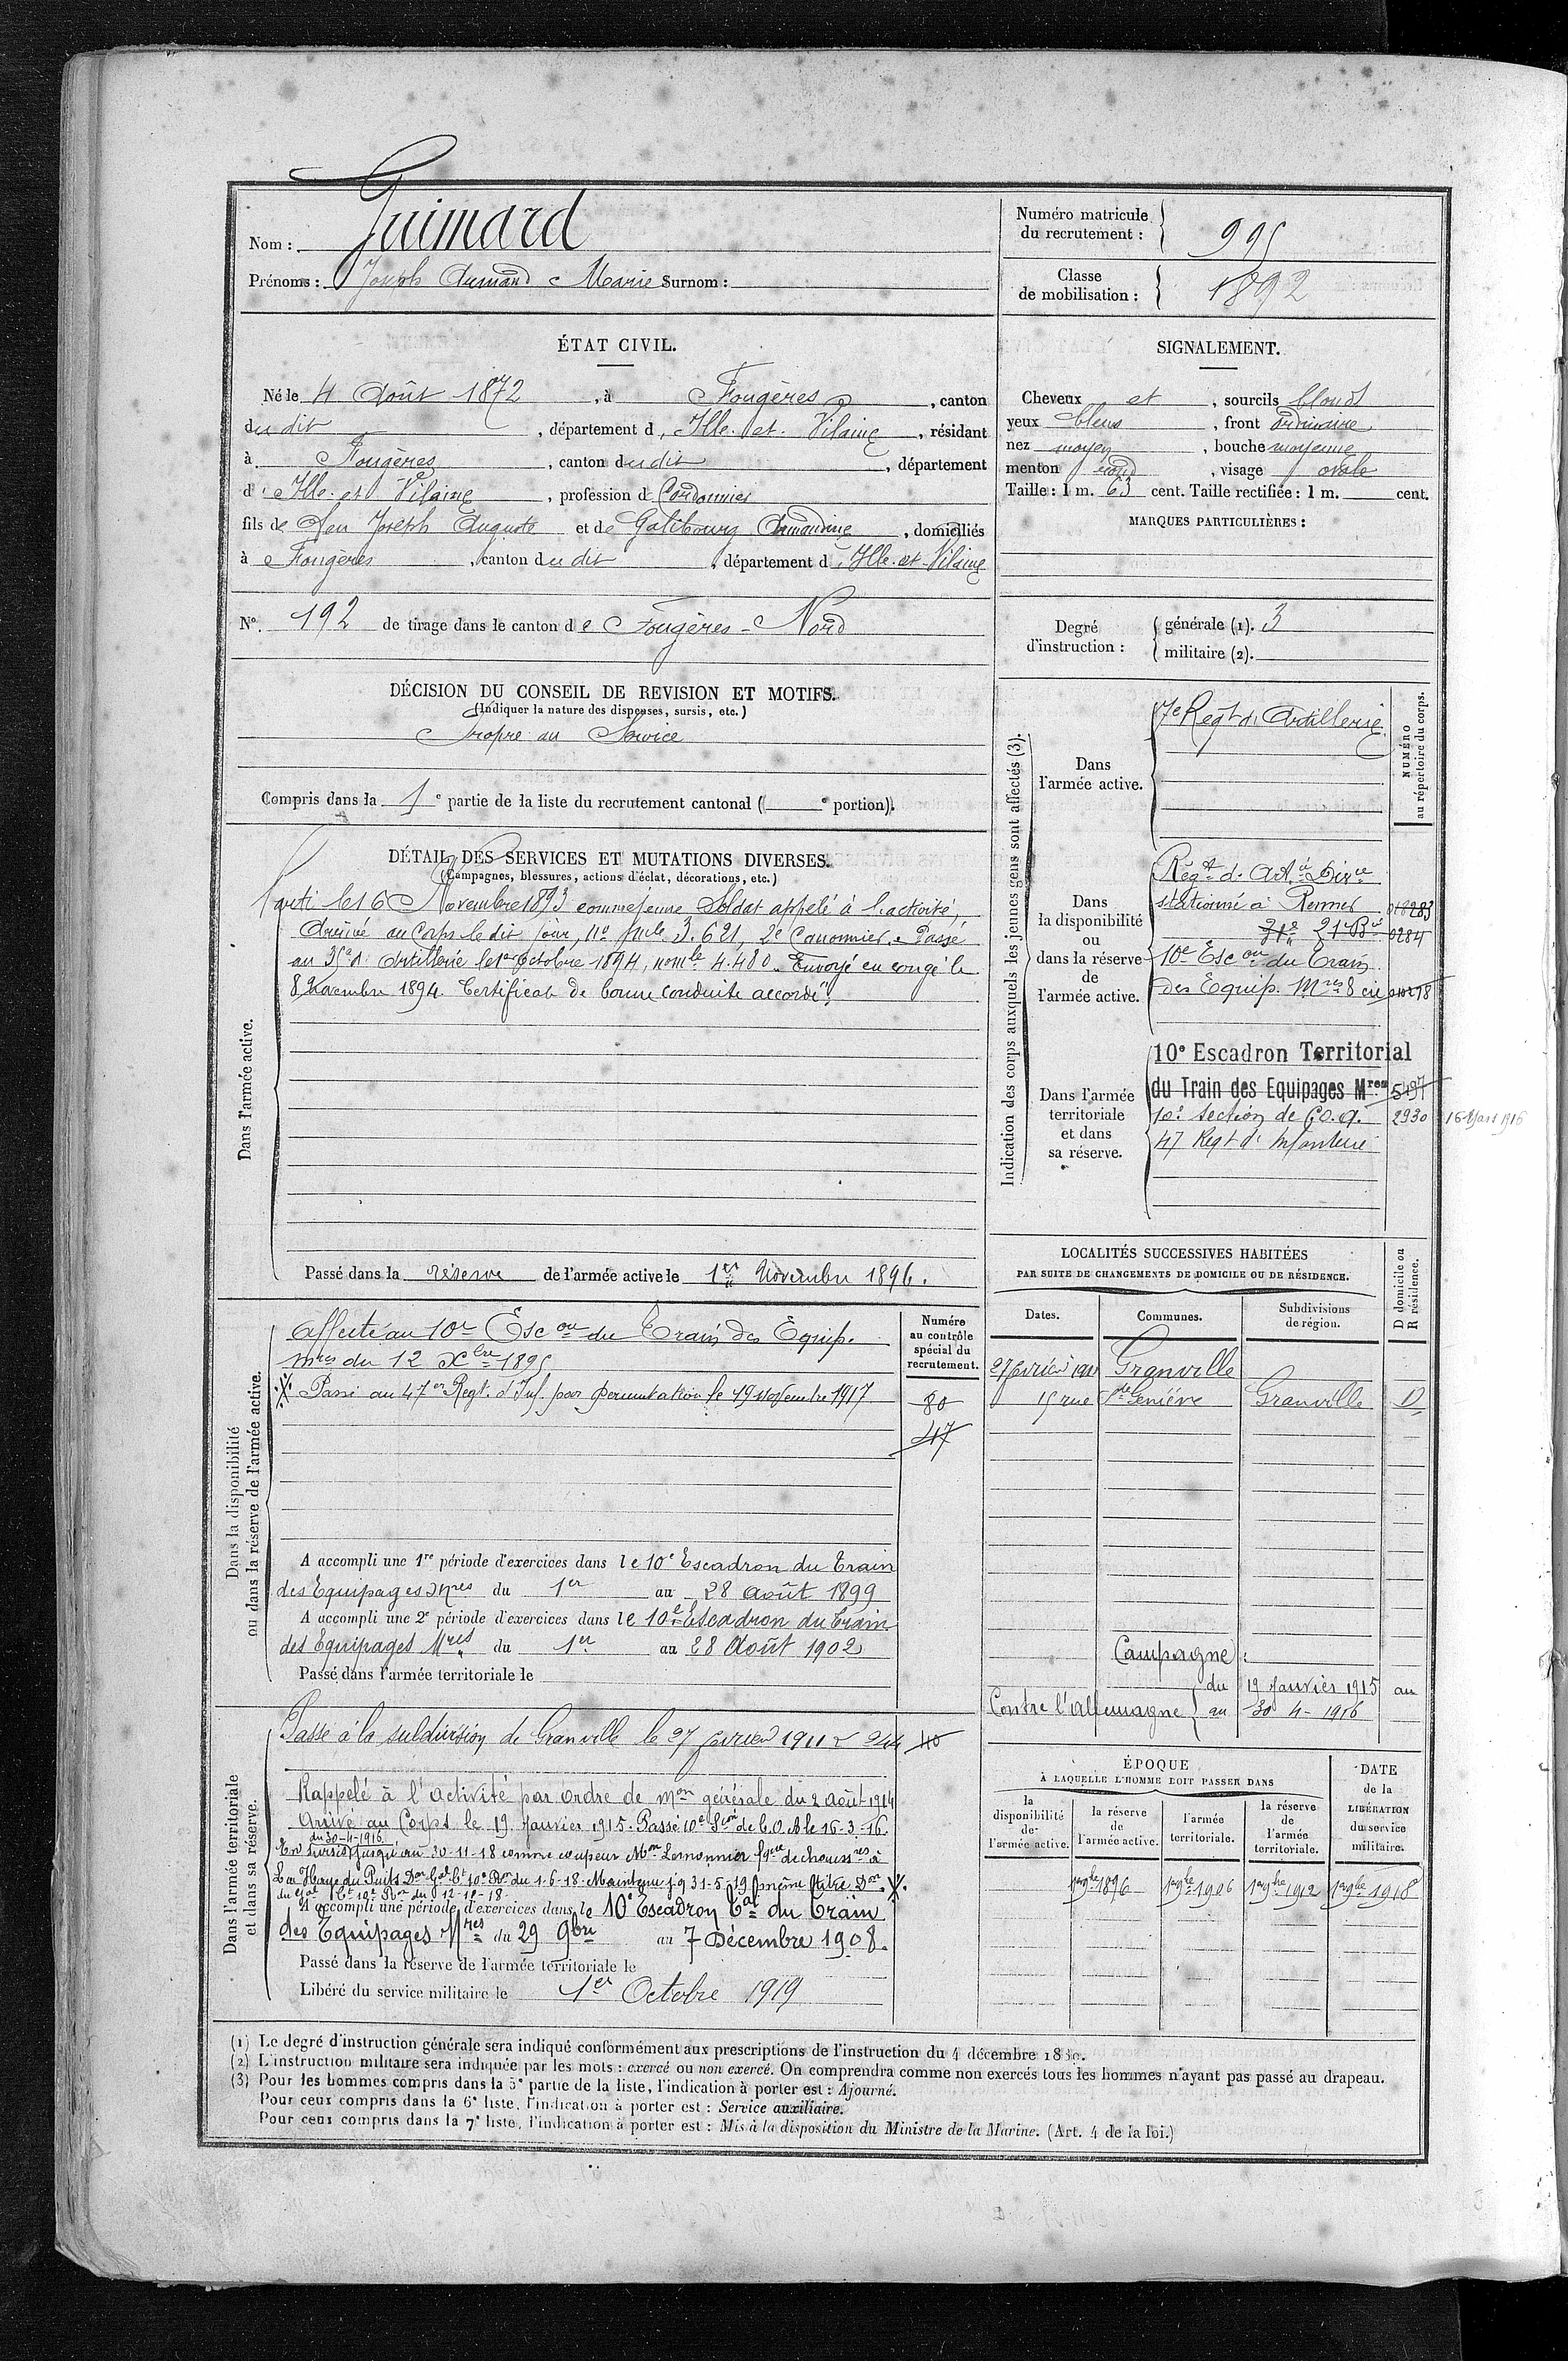 Nom : Guimard
Prénoms : Joseph Armand Marie Surnom :
Numéro matricule du recrutement : 995
Classe de mobilisation : 1892
ÉTAT CIVIL.
Né le 4 Août 1872, à Fougères, canton
du dit, département d'Ille-et-Vilaine, résidant
à Fougères, canton du dit, département
d'Ille-et-Vilaine, profession de Cordonnier
fils de feu Joseph Auguste et de Galibourg Armandine, domiciliés
à Fougères, canton du dit, département d'Ille-et-Vilaine
N° 192 de tirage dans le canton de Fougères-Nord
SIGNALEMENT.
Cheveux et, sourcils blonds
yeux bleus, front ordinaire
nez moyen, bouche moyenne
menton rond, visage ovale
Taille : 1 m. 63 cent. Taille rectifiée : 1 m. cent.
MARQUES PARTICULIÈRES :
Degré d'instruction : générale (1). 3
militaire (2).
DÉCISION DU CONSEIL DE REVISION ET MOTIFS.
(Indiquer la nature des dispenses, sursis, etc.)
Propre au Service
Compris dans la 1e partie de la liste du recrutement cantonal ( e portion).
DÉTAIL DES SERVICES ET MUTATIONS DIVERSES.
(Campagnes, blessures, actions d'éclat, décorations, etc.)
Dans l'armée active.
Parti le 16 Novembre 1893 comme jeune Soldat appelé à l'activité,
Arrivé au Corps le dit jour, No mle 3.621, 2e Canonnier. Passé
au 35e d'Artillerie le 1er octobre 1894, no mle 4.480. Envoyé en congé le
8 Novembre 1894. Certificat de bonne conduite accordé.
Passé dans la réserve de l'armée active le 1er Novembre 1896.
Indication des corps auxquels les jeunes gens sont affectés (3).
NUMÉRO au répertoire du corps.
Dans l'armée active.
7e Regt d'Artillerie
Dans la disponibilité ou dans la réserve de l'armée active.
Régt d'Artie Divre
stationné à Rennes
21e Bie 0284
10e Escon du Train
des Equip. Mres 8 cie
Dans l'armée territoriale et dans sa réserve.
10e Escadron Territorial
du Train des Equipages Mres 5497
10e Section de C.O.A. 2930 16 Mars 1916
47 Regt d'Infanterie
Dans la disponibilité ou dans la réserve de l'armée active.
Numéro au contrôle spécial du recrutement.
Affecté au 10e Escon du Train des Equip.
Mres du 12 Xbre 1895
Passé au 47e Regt. d'Inf. par permutation le 19 Novembre 1917
80
47
A accompli une 1re période d'exercices dans le 10e Escadron du Train
des Equipages Mres du 1er au 28 août 1899
A accompli une 2e période d'exercices dans le 10e Escadron du Train
des Equipages Mres du 1er au 28 Août 1902
Passé dans l'armée territoriale le
LOCALITÉS SUCCESSIVES HABITÉES
PAR SUITE DE CHANGEMENTS DE DOMICILE OU DE RÉSIDENCE.
D domicile ou R résidence.
Dates. Communes. Subdivisions de région.
27 février 1911 Granville
15 rue Ste Geniève Granville D
Campagne :
Contre l'allemagne du 19 Janvier 1915 au
au 30 4- 1916
Dans l'armée territoriale et dans sa réserve.
Passé à la subdivision de Granville le 27 février 1911 n° 244 40
Rappelé à l'activité par ordre de Mon générale du 2 août 1914
Arrivé au Corps le 19 Janvier 1915. Passé 10e Scon de C.O.A le 16-3-16.
du 30-4-1916
En sursis jusqu'au 30-11-18 comme coupeur Mon Lemonnier fque de chaussres à
La Haye du Puits Don Gal Ct 10e Ron du 1-6-18. Maintenu jq 31-5-19 même titre Don
du Gal Ct 10e Ron du 12-10-18
A accompli une période d'exercices dans le 10e Escadron Tal du Train
des Equipages Mres du 29 9bre au 7 Décembre 1908.
Passé dans la réserve de l'armée territoriale le
Libéré du service militaire le 1er Octobre 1919
ÉPOQUE
À LAQUELLE L'HOMME DOIT PASSER DANS
la disponibilité de l'armée active. la réserve de l'armée active. l'armée territoriale. la réserve de l'armée territoriale.
DATE de la LIBÉRATION du service militaire.
1er 9bre 1896 1er 9bre 1906 1er 9bre 1912 1er 9bre 1918
(1) Le degré d'instruction générale sera indiqué conformément aux prescriptions de l'instruction du 4 décembre 1889.
(2) L'instruction militaire sera indiquée par les mots : exercé ou non exercé. On comprendra comme non exercés tous les hommes n'ayant pas passé au drapeau.
(3) Pour les hommes compris dans la 5e partie de la liste, l'indication à porter est : Ajourné.
Pour ceux compris dans la 6e liste, l'indication à porter est : Service auxiliaire.
Pour ceux compris dans la 7e liste, l'indication à porter est : Mis à la disposition du Ministre de la Marine. (Art. 4 de la loi.)